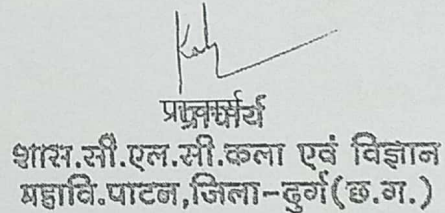 प्राचार्य
शास.सी.एल.सी.कला एवं विज्ञान
महावि.पाटन,जिला-दुर्ग(छ.ग.)